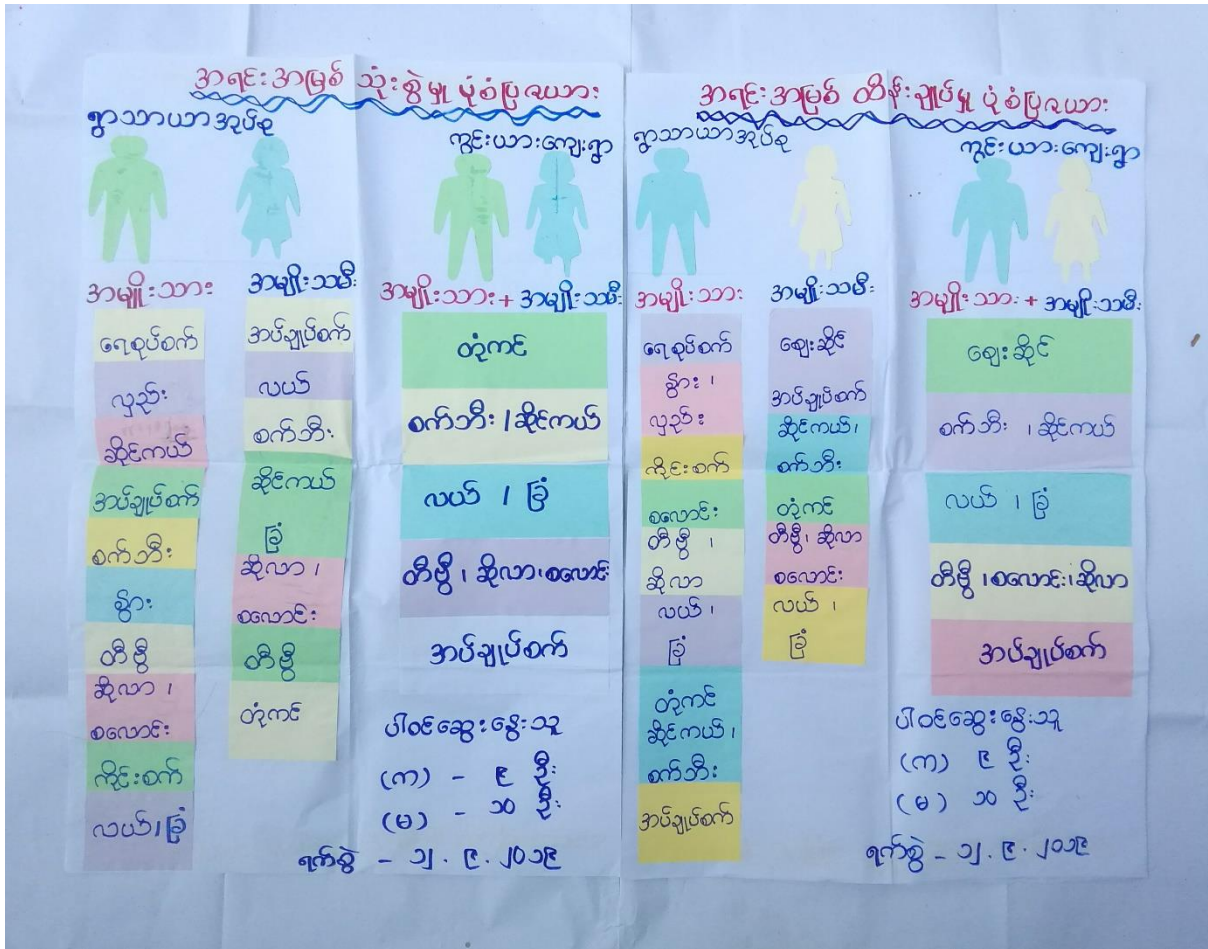 အရင်းအမြစ် သုံးစွဲမှု ပုံစံပြဇယား
ရွာသာယာအုပ်စု
ကွင်းယားကျေးရွာ
အမျိုးသား
ရေစုပ်စက်
လှည်း
ဆိုင်ကယ်
အပ်ချုပ်စက်
စက်ဘီး
နွား
တီဗွီ
ဆိုလာ ၊
စလောင်း
ကိုင်းစက်
လယ် ၊ ခြံ
အမျိုးသမီး
အပ်ချုပ်စက်
လယ်
စက်ဘီး
ဆိုင်ကယ်
ခြံ
ဆိုလာ ၊
စလောင်း
တီဗွီ
တုံကင်
အမျိုးသား + အမျိုးသမီး
တုံကင်
စက်ဘီး ၊ ဆိုင်ကယ်
လယ် ၊ ခြံ
တီဗွီ ၊ ဆိုလာ ၊ စလောင်း
အပ်ချုပ်စက်
ပါဝင်ဆွေးနွေးသူ
(က) - ၉ ဦး
(မ) - ၁၀ ဦး
ရက်စွဲ - ၁၂.၉.၂၀၁၉
အရင်းအမြစ် ထိန်းချုပ်မှု ပုံစံပြဇယား
ရွာသာယာအုပ်စု
ကွင်းယားကျေးရွာ
အမျိုးသား
ရေစုပ်စက်
နွား ၊
လှည်း
ကိုင်းစက်
စလောင်း
တီဗွီ ၊
ဆိုလာ
လယ် ၊
ခြံ
တုံကင်
ဆိုင်ကယ် ၊
စက်ဘီး
အပ်ချုပ်စက်
အမျိုးသမီး
ဈေးဆိုင်
အပ်ချုပ်စက်
ဆိုင်ကယ် ၊
စက်ဘီး
တုံကင်
တီဗွီ ၊ ဆိုလာ
စလောင်း
လယ် ၊
ခြံ
အမျိုးသား + အမျိုးသမီး
ဈေးဆိုင်
စက်ဘီး ၊ ဆိုင်ကယ်
လယ် ၊ ခြံ
တီဗွီ ၊ စလောင်း ၊ ဆိုလာ
အပ်ချုပ်စက်
ပါဝင်ဆွေးနွေးသူ
(က) ၉ ဦး
(မ) ၁၀ ဦး
ရက်စွဲ - ၁၂.၉.၂၀၁၉